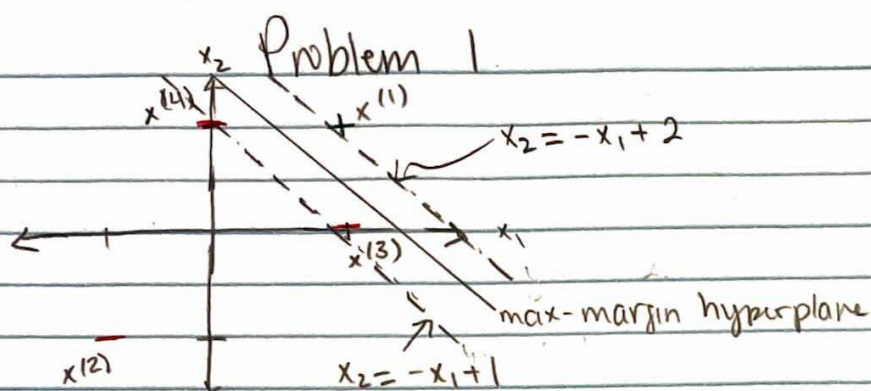 Problem 1
x₂
x⁽⁴⁾
x⁽¹⁾
x₂ = -x₁ + 2
x₁
x⁽³⁾
max-margin hyperplane
x⁽²⁾
x₂ = -x₁ + 1